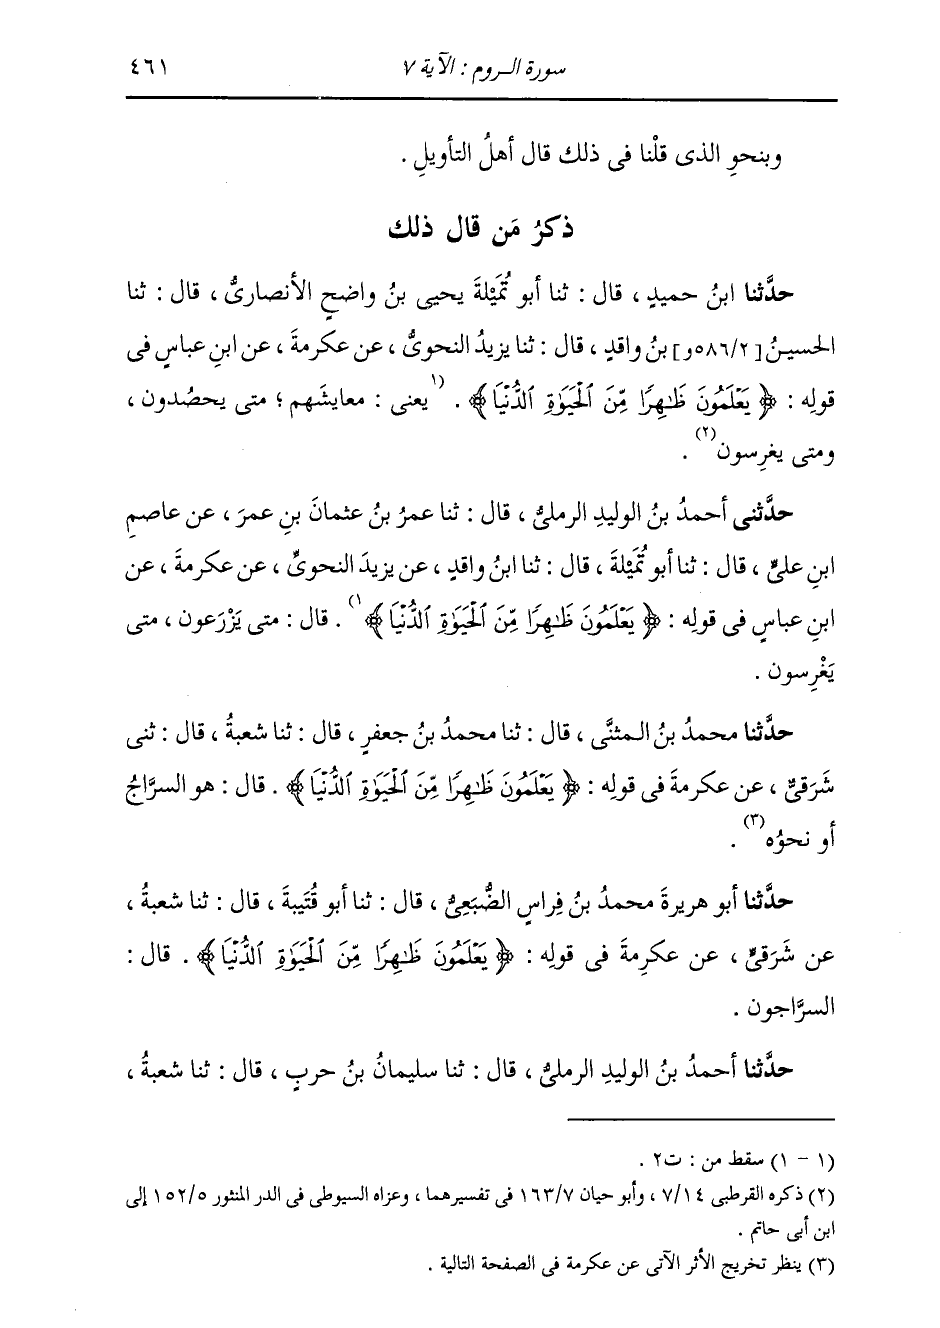 سورة الـروم : الآية ٧
٤٦١
وبنحوِ الذى قلْنا فى ذلك قال أهلُ التأويلِ .
ذكرُ مَن قال ذلك
حدَّثنا ابنُ حميدٍ ، قال : ثنا أبو تُمَيْلةَ يحيى بنُ واضحٍ الأنصارىُّ ، قال : ثنا
الحسينُ [٥٨٦/٢و] بنُ واقدٍ ، قال : ثنا يزيدُ النحوىُّ ، عن عكرمةَ ، عن ابنِ عباسٍ فى
قولِه : ﴿ يَعْلَمُونَ ظَٰهِرًا مِّنَ الْحَيَوٰةِ الدُّنْيَا ﴾ . (١يعنى : معايشَهم ؛ متى يحصُدون ،
ومتى يغرِسون(٢) .
حدَّثنى أحمدُ بنُ الوليدِ الرملىُّ ، قال : ثنا عمرُ بنُ عثمانَ بنِ عمرَ ، عن عاصمِ
ابنِ علىٍّ ، قال : ثنا أبو تُمَيْلةَ ، قال : ثنا ابنُ واقدٍ ، عن يزيدَ النحوىِّ ، عن عكرمةَ ، عن
ابنِ عباسٍ فى قولِه : ﴿ يَعْلَمُونَ ظَٰهِرًا مِّنَ الْحَيَوٰةِ الدُّنْيَا ﴾ ١) . قال : متى يَزْرَعون ، متى
يَغْرِسون .
حدَّثنا محمدُ بنُ المثنَّى ، قال : ثنا محمدُ بنُ جعفرٍ ، قال : ثنا شعبةُ ، قال : ثنى
شَرَقىٌّ ، عن عكرمةَ فى قولِه : ﴿ يَعْلَمُونَ ظَٰهِرًا مِّنَ الْحَيَوٰةِ الدُّنْيَا ﴾ . قال : هو السرَّاجُ
أو نحوُه(٣) .
حدَّثنا أبو هريرةَ محمدُ بنُ فِراسٍ الضُّبَعِىُّ ، قال : ثنا أبو قُتَيبةَ ، قال : ثنا شعبةُ ،
عن شَرَقىٍّ ، عن عكرِمةَ فى قولِه : ﴿ يَعْلَمُونَ ظَٰهِرًا مِّنَ الْحَيَوٰةِ الدُّنْيَا ﴾ . قال :
السرَّاجون .
حدَّثنا أحمدُ بنُ الوليدِ الرملىُّ ، قال : ثنا سليمانُ بنُ حربٍ ، قال : ثنا شعبةُ ،
(١ - ١) سقط من : ت٢ .
(٢) ذكره القرطبى ٧/١٤ ، وأبو حيان ١٦٣/٧ فى تفسيرهما ، وعزاه السيوطى فى الدر المنثور ١٥٢/٥ إلى
ابن أبى حاتم .
(٣) ينظر تخريج الأثر الآتى عن عكرمة فى الصفحة التالية .